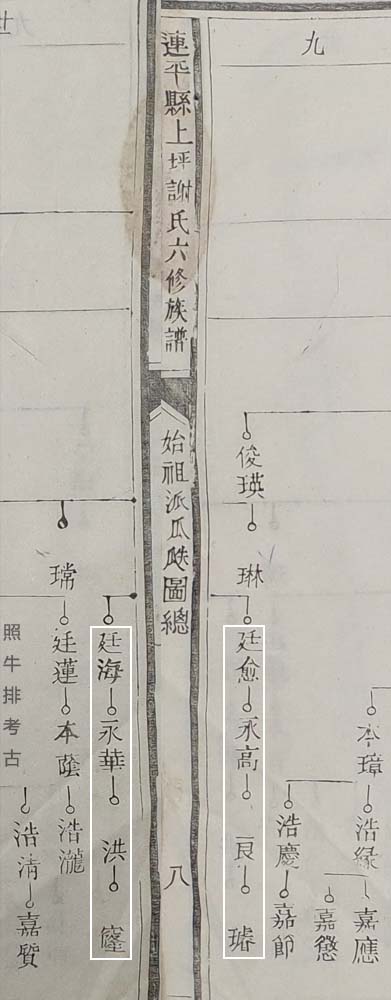 九
俊瑛
琳
廷愈
永高
艮
璿
本璋
浩緑
嘉應
嘉懲
浩慶
嘉節
連平縣上坪謝氏六修族譜
始祖派瓜瓞圖總
八
世
瑺
廷海
永華
洪
廷蓮
本蔭
浩瀧
浩清
嘉賢
照牛排考古